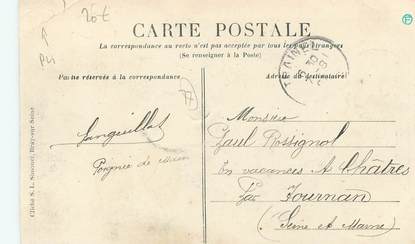 20€
P
PLI
CARTE POSTALE
La correspondance au recto n'est pas acceptée par tous les pays étrangers
(Se renseigner à la Poste)
Partie réservée à la correspondance
Adresse du destinataire
77
Sanguillat
Poignée de main
Monsieur
Paul Rossignol
En vacances à Châtres
Par Tournan
(Seine et Marne)
Cliché S. L. Bray-sur-Seine